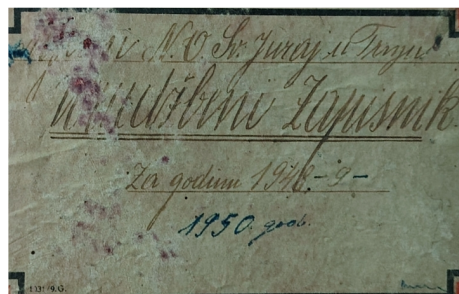 N.O Sv. Juraj u Trnju
Urudžbeni Zapisnik
Za godinu 1948-9-
1950. god.
1331/9.G.